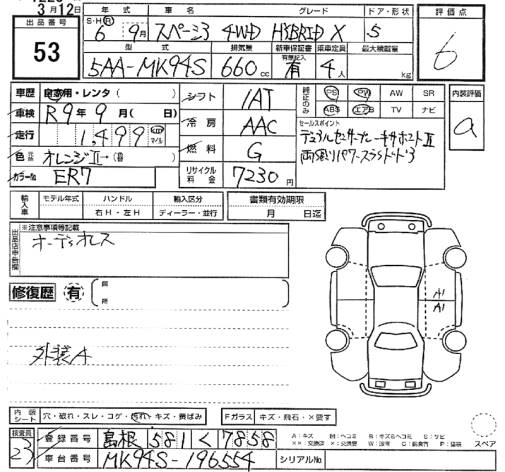 3月12日
出品番号 53
年式 車名 グレード ドア・形状 評価点
S・H・R 6 9月 スペーシア 4WD HYBRID X 5 6
型式 排気量 新車保証書 乗車定員 最大積載量
有無記入
5AA-MK94S 660cc 有 4人 kg
車歴 自家用・レンタ( )
車検 R9年9月( 日)
走行 1,499 km マイル
色 オレンジⅡ→
カラーNo ER7
シフト IAT
冷房 AAC
燃料 G
リサイクル料金 7230円
純正品のみ PS PW AW SR
ABS エアB TV ナビ
セールスポイント
デュアルセンサーブレーキサポートⅡ
両側パワースライドドア
内装評価 a
輸入車 モデル年式 ハンドル 輸入区分 書類有効期限
年 右H・左H ディーラー・並行 月 日迄
※注意事項等記載
オーディオレス
修復歴 有 箇所
外装A
A1
A1
内装シート 穴・破れ・スレ・コゲ・汚れ・キズ・黄ばみ Fガラス キズ・飛石・×要す
検査員 23
登録番号 島根 581 く 7858
車台番号 MK94S-196554 シリアルNo
スペア